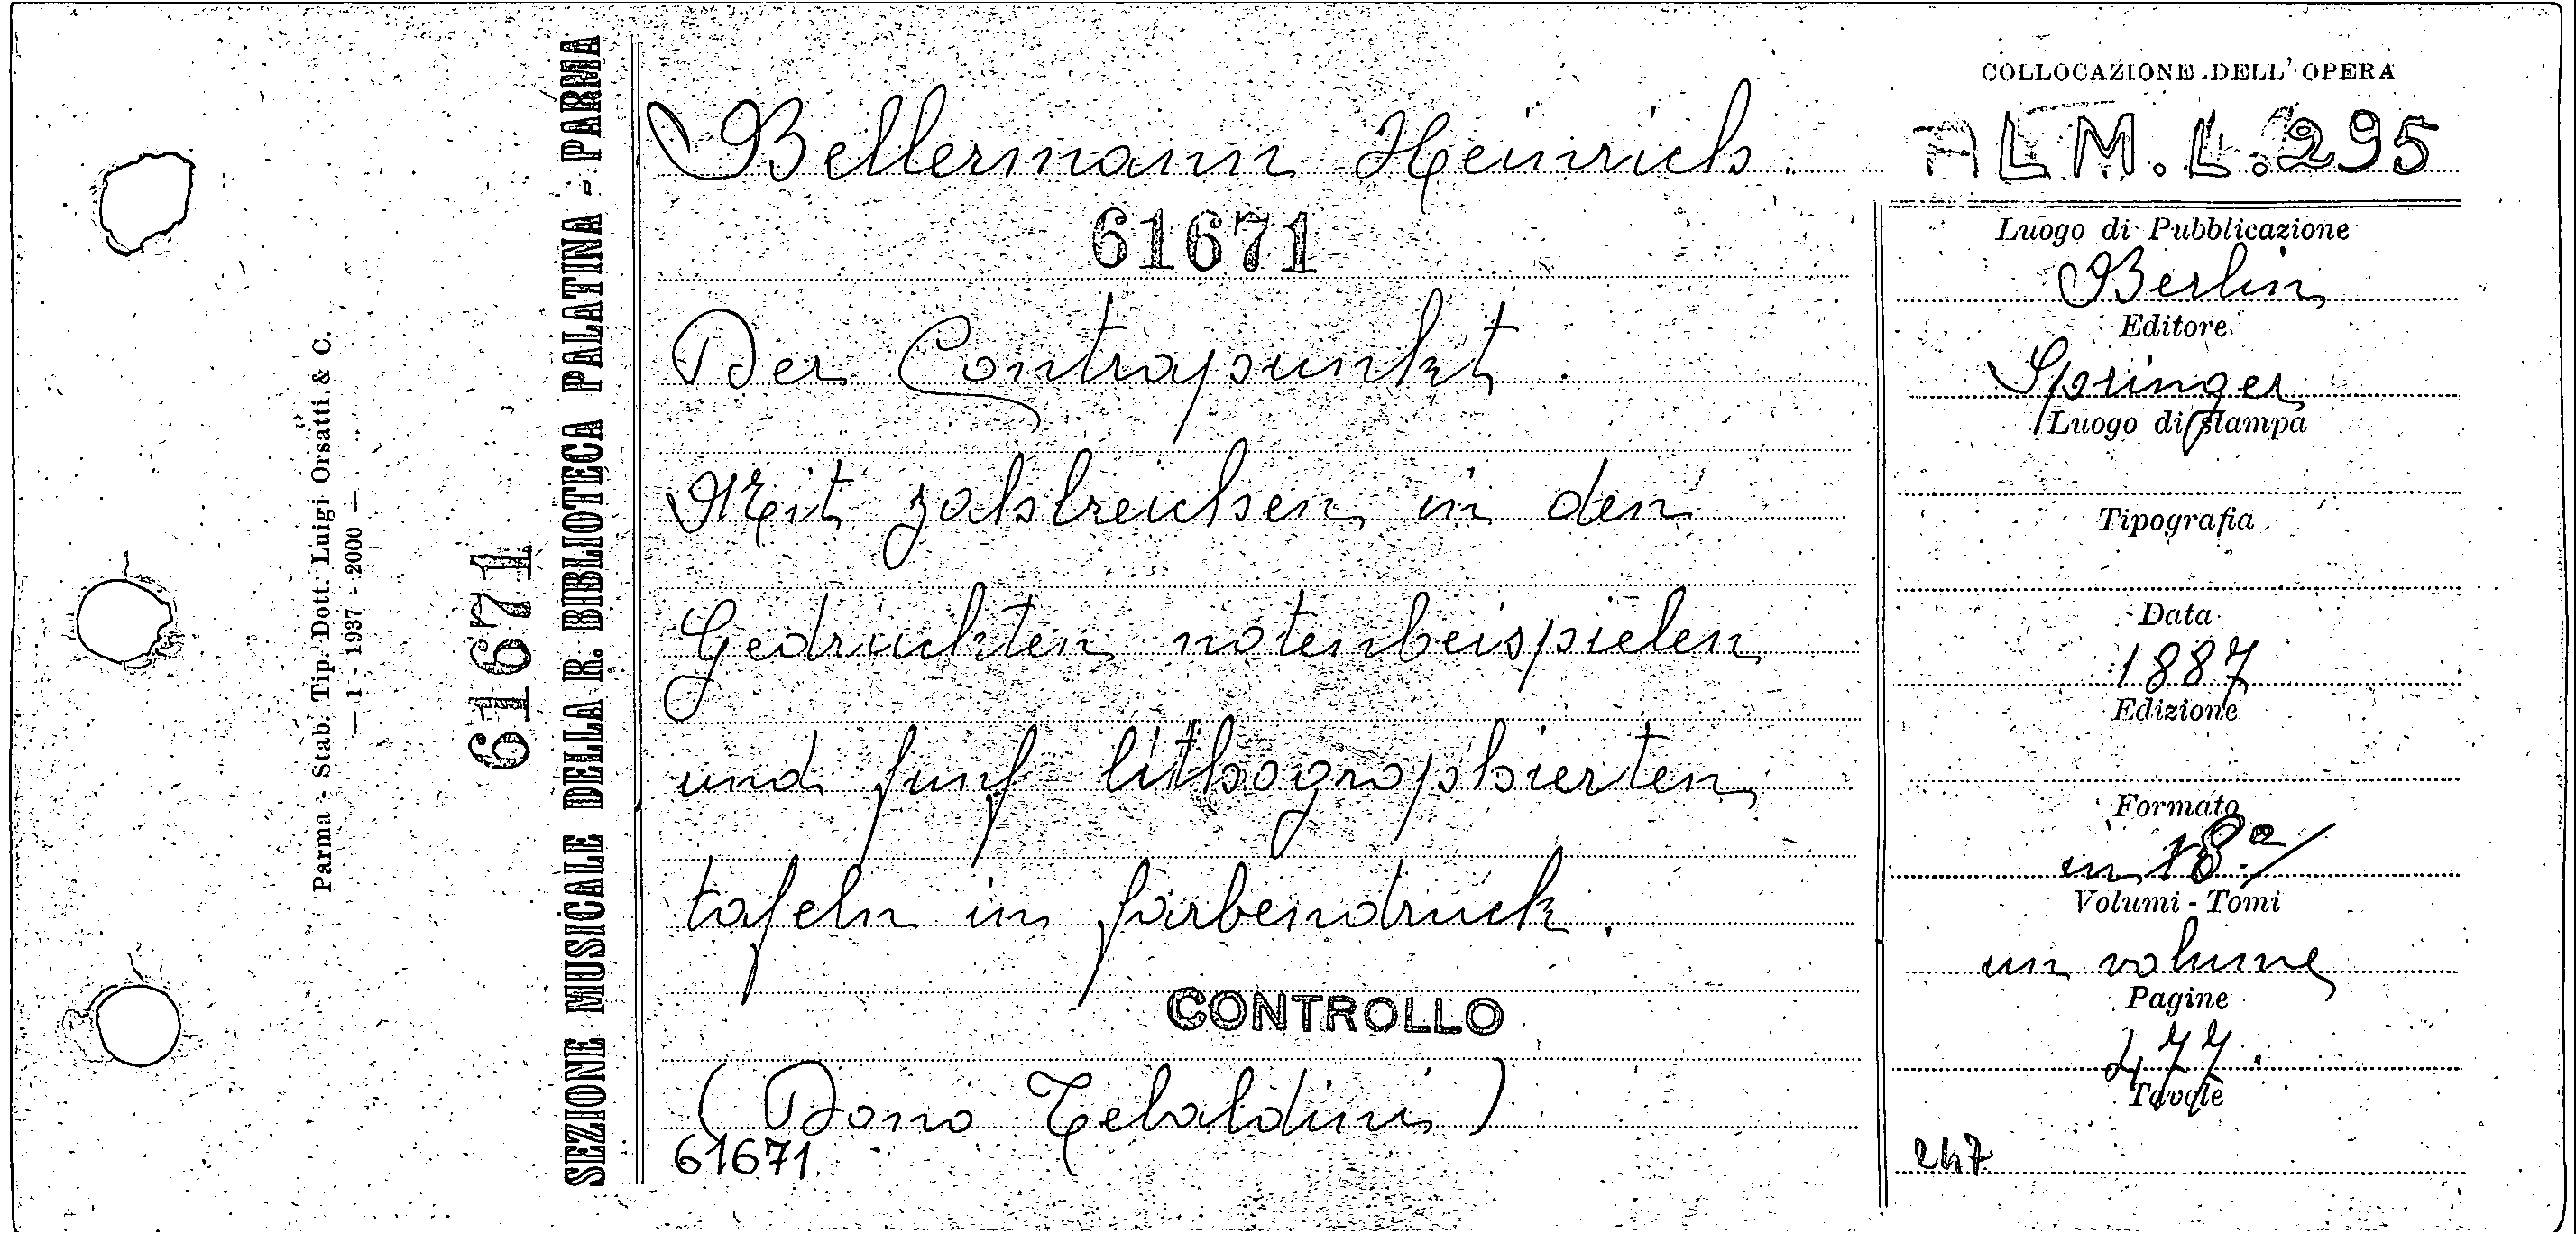 Parma - Stab. Tip. Dott. Luigi Orsatti & C.
— 1 - 1937 - 2000 —
61671
SEZIONE MUSICALE DELLA R. BIBLIOTECA PALATINA - PARMA
Bellermann Heinrich.
61671
Der Contrapunkt.
Mit zahlreichen in den
Gedruckten notenbeispielen
und funf lithographierten
tafeln in farbendruck.
CONTROLLO
(Dono Tebaldini)
61671
COLLOCAZIONE DELL' OPERA
ALM.L.295
Luogo di Pubblicazione
Berlin
Editore
Springer
Luogo di stampa
Tipografia
Data
1887
Edizione
Formato
in 18º
Volumi - Tomi
un volume
Pagine
477.
Tavole